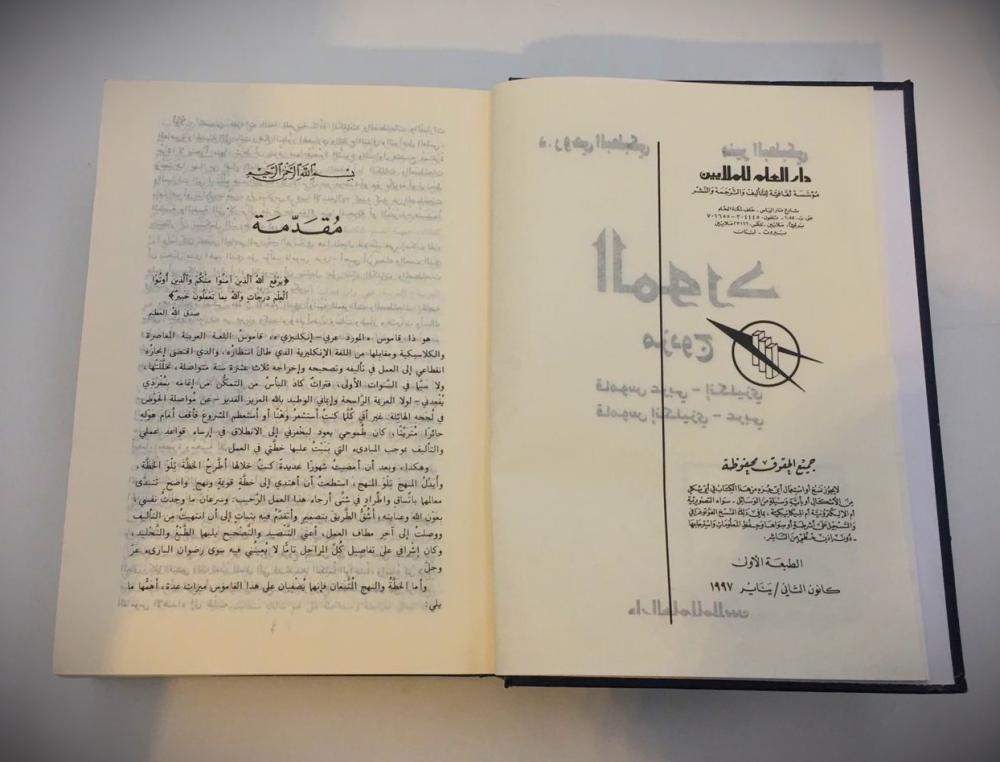 دار العلم للملايين
مؤسسة ثقافية للتأليف والترجمة والنشر
شارع مار الياس - خلف ثكنة الحلو
ص.ب: ١٠٨٥ - تلفون: ٣٠٤٤٤٥ - ٧٠١٦٥٥
برقيًا: ملايين - تلكس: ٢٣١٦٦ ملايين
بيروت - لبنان
جميع الحقوق محفوظة
لا يجوز نسخ أو استعمال أي جزء من هذا الكتاب في أي شكل
من الأشكال أو بأية وسيلة من الوسائل - سواء التصويرية
أم الإلكترونية أم الميكانيكية، بما في ذلك النسخ الفوتوغرافي
والتسجيل على أشرطة أو سواها وحفظ المعلومات واسترجاعها
- دون إذن خطي من الناشر.
الطبعة الأولى
كانون الثاني / يناير ١٩٩٧
منير البعلبكي
د. روحي البعلبكي
المورد
مزدوج
قاموس عربي - إنكليزي
قاموس إنكليزي - عربي
دار العلم للملايين
بسم الله الرحمن الرحيم
مُقدّمة
﴿يرفع اللهُ الذين آمنُوا منكُم والذين أوتُوا
العِلمَ درجاتٍ واللهُ بما تعمَلُون خبيرٌ﴾
صدق الله العظيم
هو ذا قاموس «المورد عربي-إنكليزي»، قاموسُ اللغة العربية المعاصرة
والكلاسيكية ومقابلها من اللغة الإنكليزية الذي طالَ انتظارُه، والذي اقتضى إنجازُه
انقطاعي إلى العمل في تأليفه وتصحيحه وإخراجه ثلاث عشرة سنة متواصلة، تخلّلتْها،
ولا سيّما في السنوات الأولى، فتراتٌ كادَ اليأسُ من التمكّن من إتمامه بمُفْرَدي
يُقعِدُني - لولا العزيمةُ الرّاسخة وإيماني الوطيد بالله العزيز القدير - عن مُواصلة الخَوْض
في لُججه الهائلة. غيرَ أنّي كُلّما كنتُ أستشعرُ وَهْنًا أو أستعظم المشروعَ فأقفُ أمامَ هوْله
حائرًا مُتَريّثًا، كان طُموحي يعود ليحفزني إلى الانطلاق في إرساء قواعد عملي
والتأليف بموجب المبادىء التي بَنَيْتُ عليها خطّتي في العمل.
وهكذا، وبعد أن أمضيتُ شهورًا عديدة كنتُ خلالها أطرحُ الخطّةَ تِلْوَ الخطّة،
وأبدّلُ المنهجَ تِلْوَ المنهج، استطعتُ أن أهتدي إلى خطّةٍ قويمةٍ ونهجٍ واضحٍ تتبدّى
معالمها باتّساقٍ واطّرادٍ في شتّى أرجاء هذا العمل الرّحيب. وسرعانَ ما وجدتُ نفسي،
بعون الله وعنايته، أشقُّ الطريقَ بتصميم وأتقدّمُ فيه بثباتٍ إلى أن انتهيتُ من التأليف
ووصلتُ إلى آخر مطاف العمل، أعني التّنضيد والتصحيح يليهما الطّبْعُ والتّجليد،
وكان إشرافي على تفاصيل كُلِّ المراحل تامًّا لا يُعينُني فيه سوى رضوان البارىء عزّ
وجلّ.
وأما الخطّةُ والنهج المتّبعان فإنهما يُضفيان على هذا القاموس ميزات عدة، أهمُّها ما
يلي: